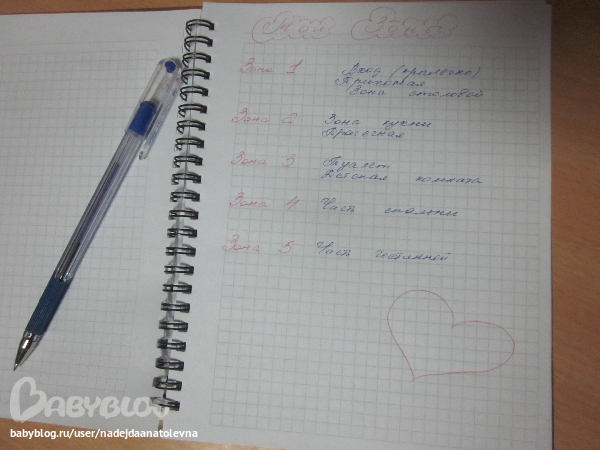 Мои Зоны
Зона 1 Вход (крыльцо)
Прихожая
Зона столовой
Зона 2 Зона кухни
Прачечная
Зона 3 Туалет
Детская комната
Зона 4 Часть спальни
Зона 5 Часть гостинной
BABYBLOG
babyblog.ru/user/nadejdaanatolevna